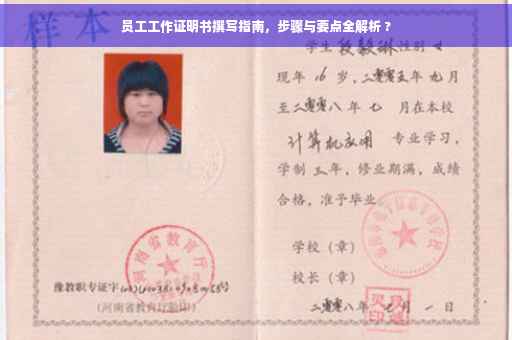 员工工作证明书撰写指南，步骤与要点全解析？
样本
学生 段毅琳 性别 女
现年 16 岁，二零零五年 九 月
至二零零八年 七 月在本校
计算机应用 专业学习，
学制 三 年，修业期满，成绩
合格，准予毕业
学校（章）
校长（章）
二零零八年 月 一 日
河南省教育厅
豫教职专证字
（河南省教育厅验印）